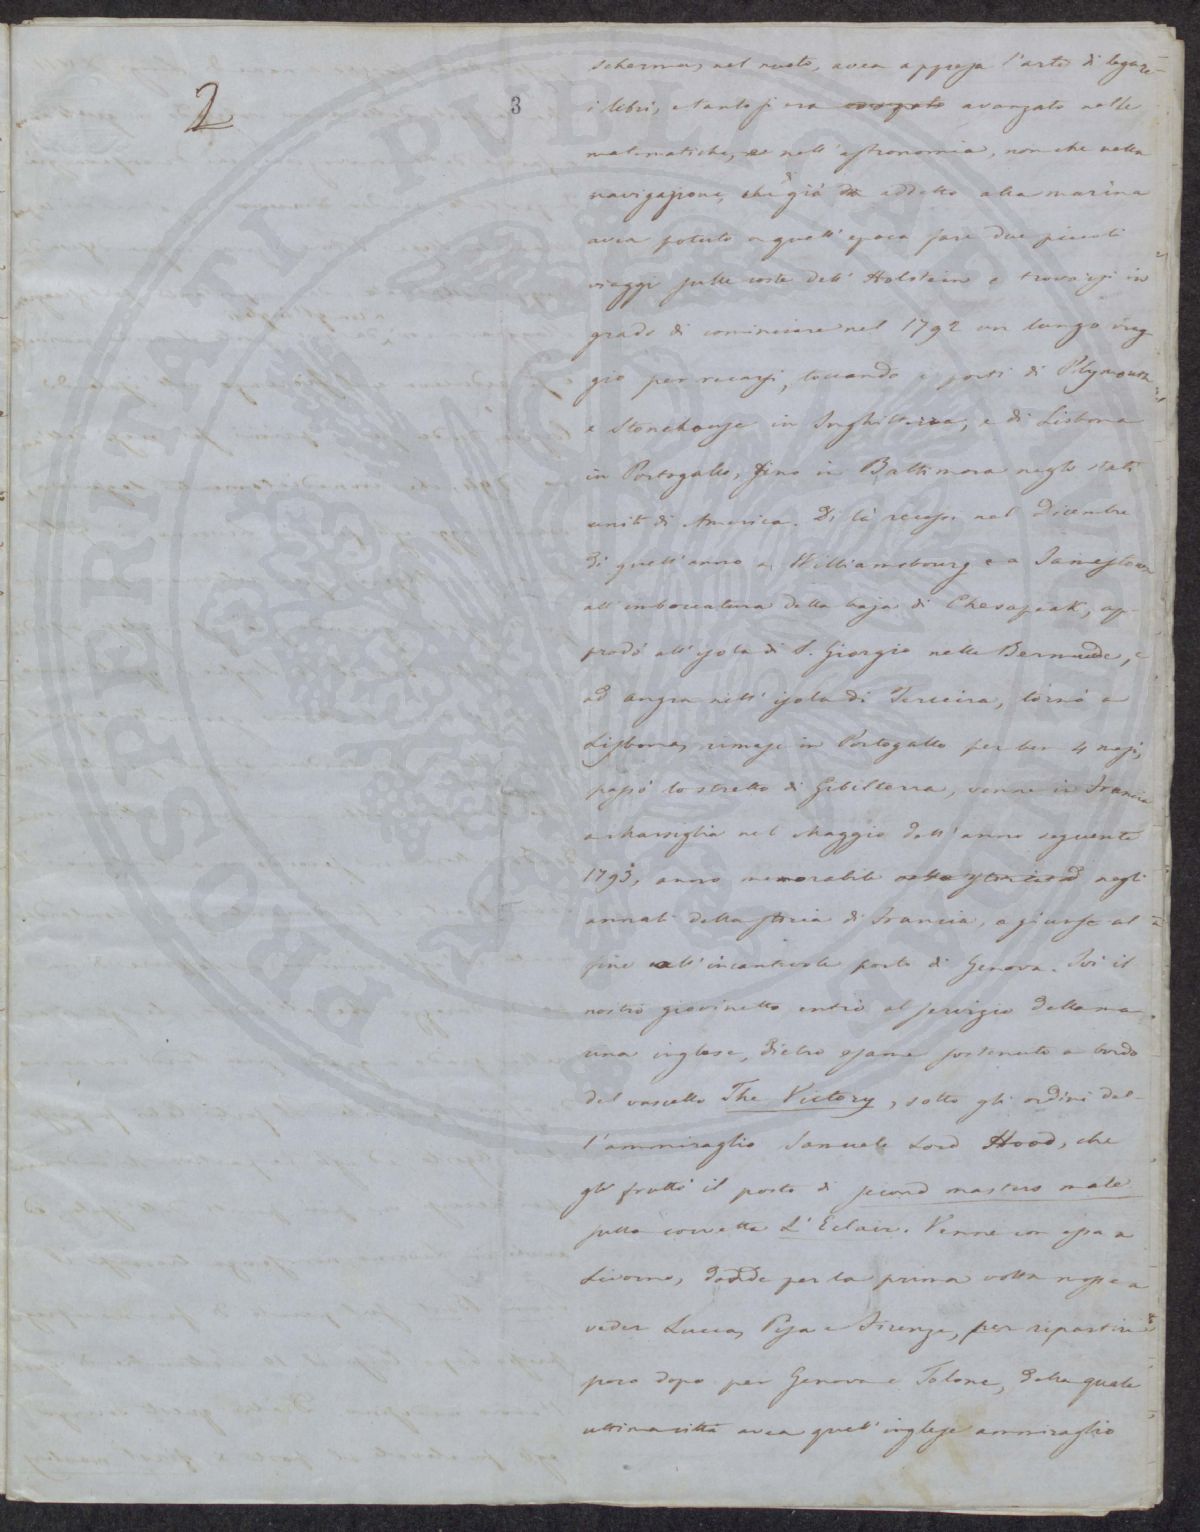 2
3
scherma, nel nuoto, avea appresa l'arte di legare
i libri, e tanto si era avanzato nelle
matematiche, e nell'astronomia, non che nella
navigazione, che già addetto alla marina
avea potuto a quell'epoca fare due piccoli
viaggi sulle coste dell'Holstein e trovarsi in
grado di cominciare nel 1792 un lungo viag
gio per recarsi, toccando i porti di Plymouth
e Stonehouse in Inghilterra, e di Lisbona
in Portogallo, fino in Baltimora negli stati
uniti di America. Di là recossi nel Dicembre
di quell'anno a Williamsbourg e a Jamestown
all'imboccatura della baja di Chesapeak, ap-
prodò all'isola di S. Giorgio nelle Bermude, e
ad Angra nell'isola di Terceira, tornò a
Lisbona, rimase in Portogallo per ben 4 mesi,
passò lo stretto di Gibilterra, venne in Francia
a Marsiglia nel Maggio dell'anno seguente
1793, anno memorabile negli
annali della storia di Francia, e giunse al
fine all'incantevole porto di Genova. Ivi il
nostro giovinetto entrò al servizio della ma
rina inglese, dietro esame sostenuto a bordo
del vascello The Victory, sotto gli ordini del-
l'ammiraglio Samuele Lord Hood, che
gli fruttò il posto di second masters mate
sulla corvetta L'Eclair. Venne con essa a
Livorno, dadde per la prima volta mosse a
veder Lucca, Pisa e Firenze, per ripartire
poco dopo per Genova e Tolone, della quale
ultima città avea quell'inglese ammiraglio
PROSPERITATI PVBLICAE